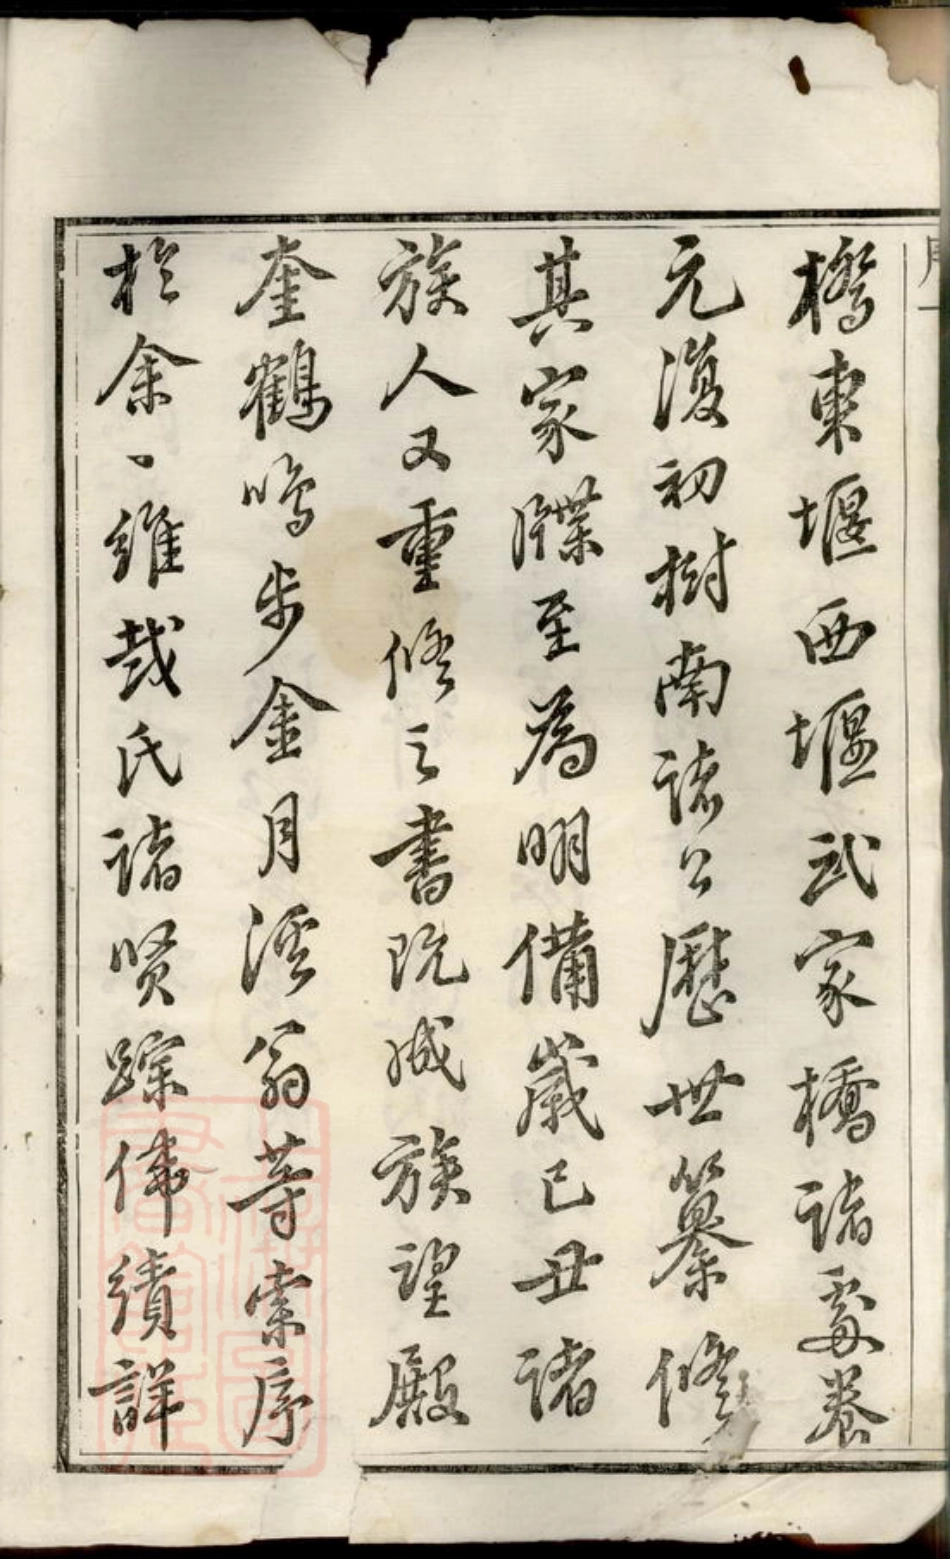 橋東堰西堰武家橋諸處養
元復初樹南諸公歷世纂修
其家牒至為明備歲己丑諸
族人又重修之書既成族望殿
奎鶴鳴步金月溪翁等索序
於余丶維哉氏諸賢蹤偉績詳